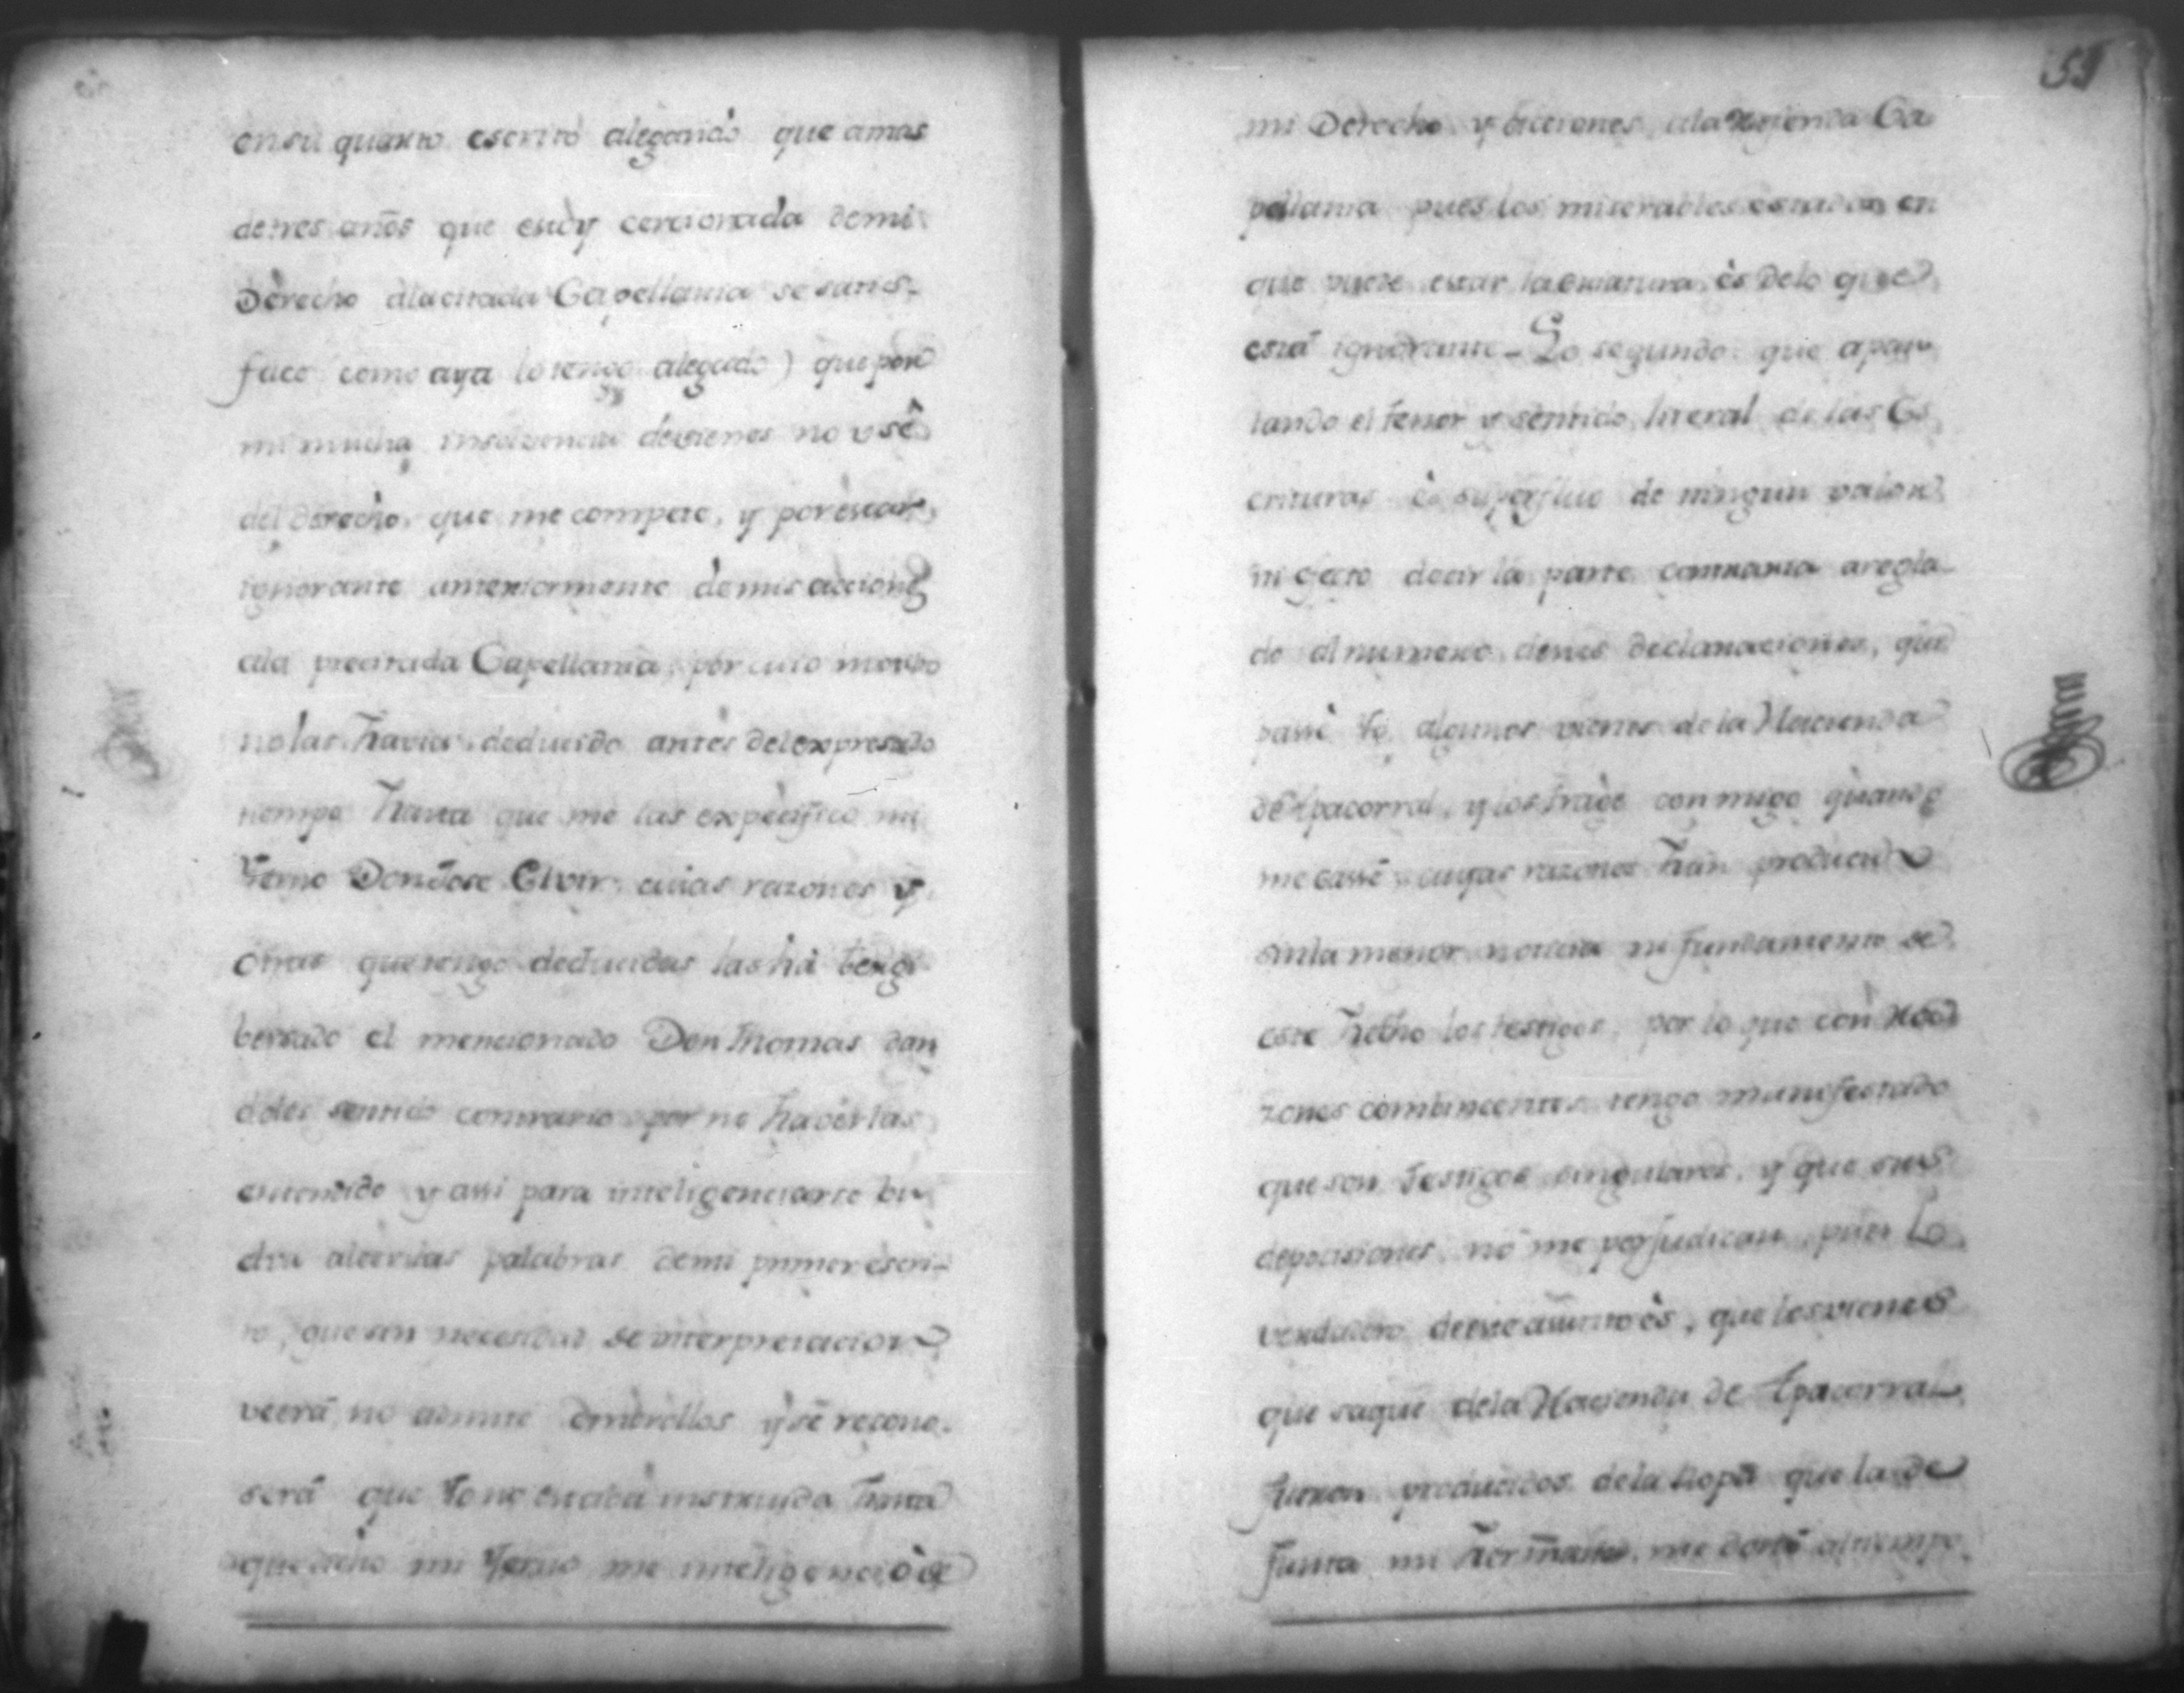 en su quarto escrito alegando que amas
de tres años que estoy cercionada de mi
Derecho ala citada Capellania se satis-
face (como aya lo tengo alegado) que por
mi mucha insolvencia de vienes no usè
del derecho, que me compete, y por estar
ignorante anteriormente de mis acciones
ala precitada Capellania, por cuio motibo
no las havia deducido antes del expresado
tiempo hasta que me las expècifico mi
Yerno Don Jose Elvir cuias razones y
otras que tengo deducidas las hà tergi
bersado el mencionado Don Thomas dan
doles sentido contrario por no haverlas
entendido y assi para inteligenciarse bu
elva aleerlas palabras de mi primer escri-
to, que sin necesidad se interpretacion
veerá no admite embrollos y se recono-
serà que Yo no estaba instruida hasta
que dicho mi Yerno me inteligenciò de
59
mi Derecho y acciones ala referida Ca
pellania pues los miserables estados en
que puede estar la criatura ès Delo que
està ignorante - Lo segundo que apar
tando el tenor y sentido literal de las Es
crituras ès superfluo de ningun valor
ni efecto decir la parte contraria aregla-
do al numero de tres declaraciones, que
passè Yo algunos vienes de la Hacienda
de Apacorral, y los traje conmigo quando
me cassè cuyas razones han producido
sin la menor noticia ni fundamento de
este hecho los testigos, por lo que con Ra
zones combincentes tengo manifestado
que son Testigos singulares, y que sus
deposisiones no me perjudican, pues Lo
verdadero de este asumto ès, que los vienes
que saque dela Hacienda de Apacorral
fueron producidos dela Ropa que la de
funta mi Hermana me dotó al tiempo